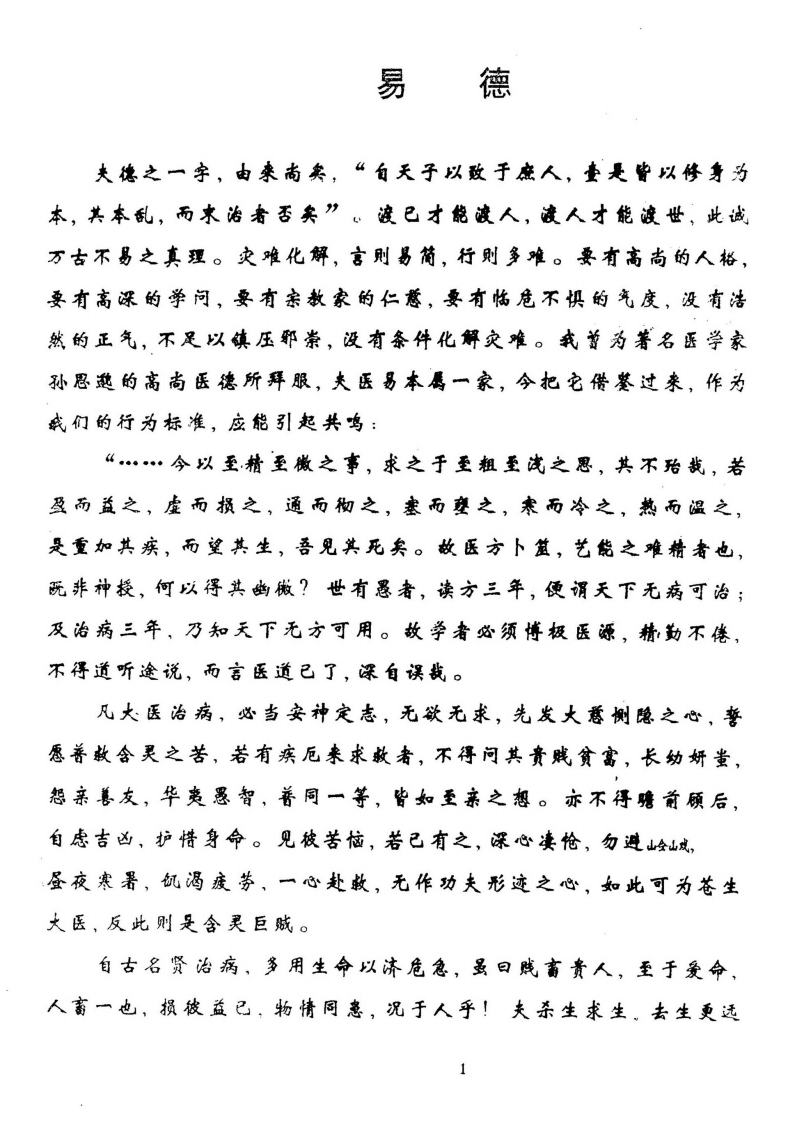 易 德
夫德之一字，由来尚矣，“自天子以致于庶人，壹是皆以修身为
本，其本乱，而末治者否矣”。渡已才能渡人，渡人才能渡世，此诚
万古不易之真理。灾难化解，言则易简，行则多难。要有高尚的人格，
要有高深的学问，要有宗教家的仁慈，要有临危不惧的气度，没有浩
然的正气，不足以镇压邪祟，没有条件化解灾难。我曾为著名医学家
孙思邈的高尚医德所拜服，夫医易本属一家，今把它借鉴过来，作为
我们的行为标准，应能引起共鸣：
“……今以至精至微之事，求之于至粗至浅之思，其不殆哉，若
盈而益之，虚而损之，通而彻之，塞而壅之，寒而冷之，热而温之，
是重加其疾，而望其生，吾见其死矣。故医方卜筮，艺能之难精者也，
既非神授，何以得其幽微？世有愚者，读方三年，便谓天下无病可治；
及治病三年，乃知天下无方可用。故学者必须博极医源，精勤不倦，
不得道听途说，而言医道已了，深自误哉。
凡大医治病，必当安神定志，无欲无求，先发大慈恻隐之心，誓
愿普救含灵之苦，若有疾厄来求救者，不得问其贵贱贫富，长幼妍蚩，
怨亲善友，华夷愚智，普同一等，皆如至亲之想。亦不得瞻前顾后，
自虑吉凶，护惜身命。见彼苦恼，若已有之，深心凄怆，勿避
昼夜寒暑，饥渴疲劳，一心赴救，无作功夫形迹之心，如此可为苍生
大医，反此则是含灵巨贼。
自古名贤治病，多用生命以济危急，虽曰贱畜贵人，至于爱命，
人畜一也，损彼益已，物情同患，况于人乎！夫杀生求生，去生更远
1